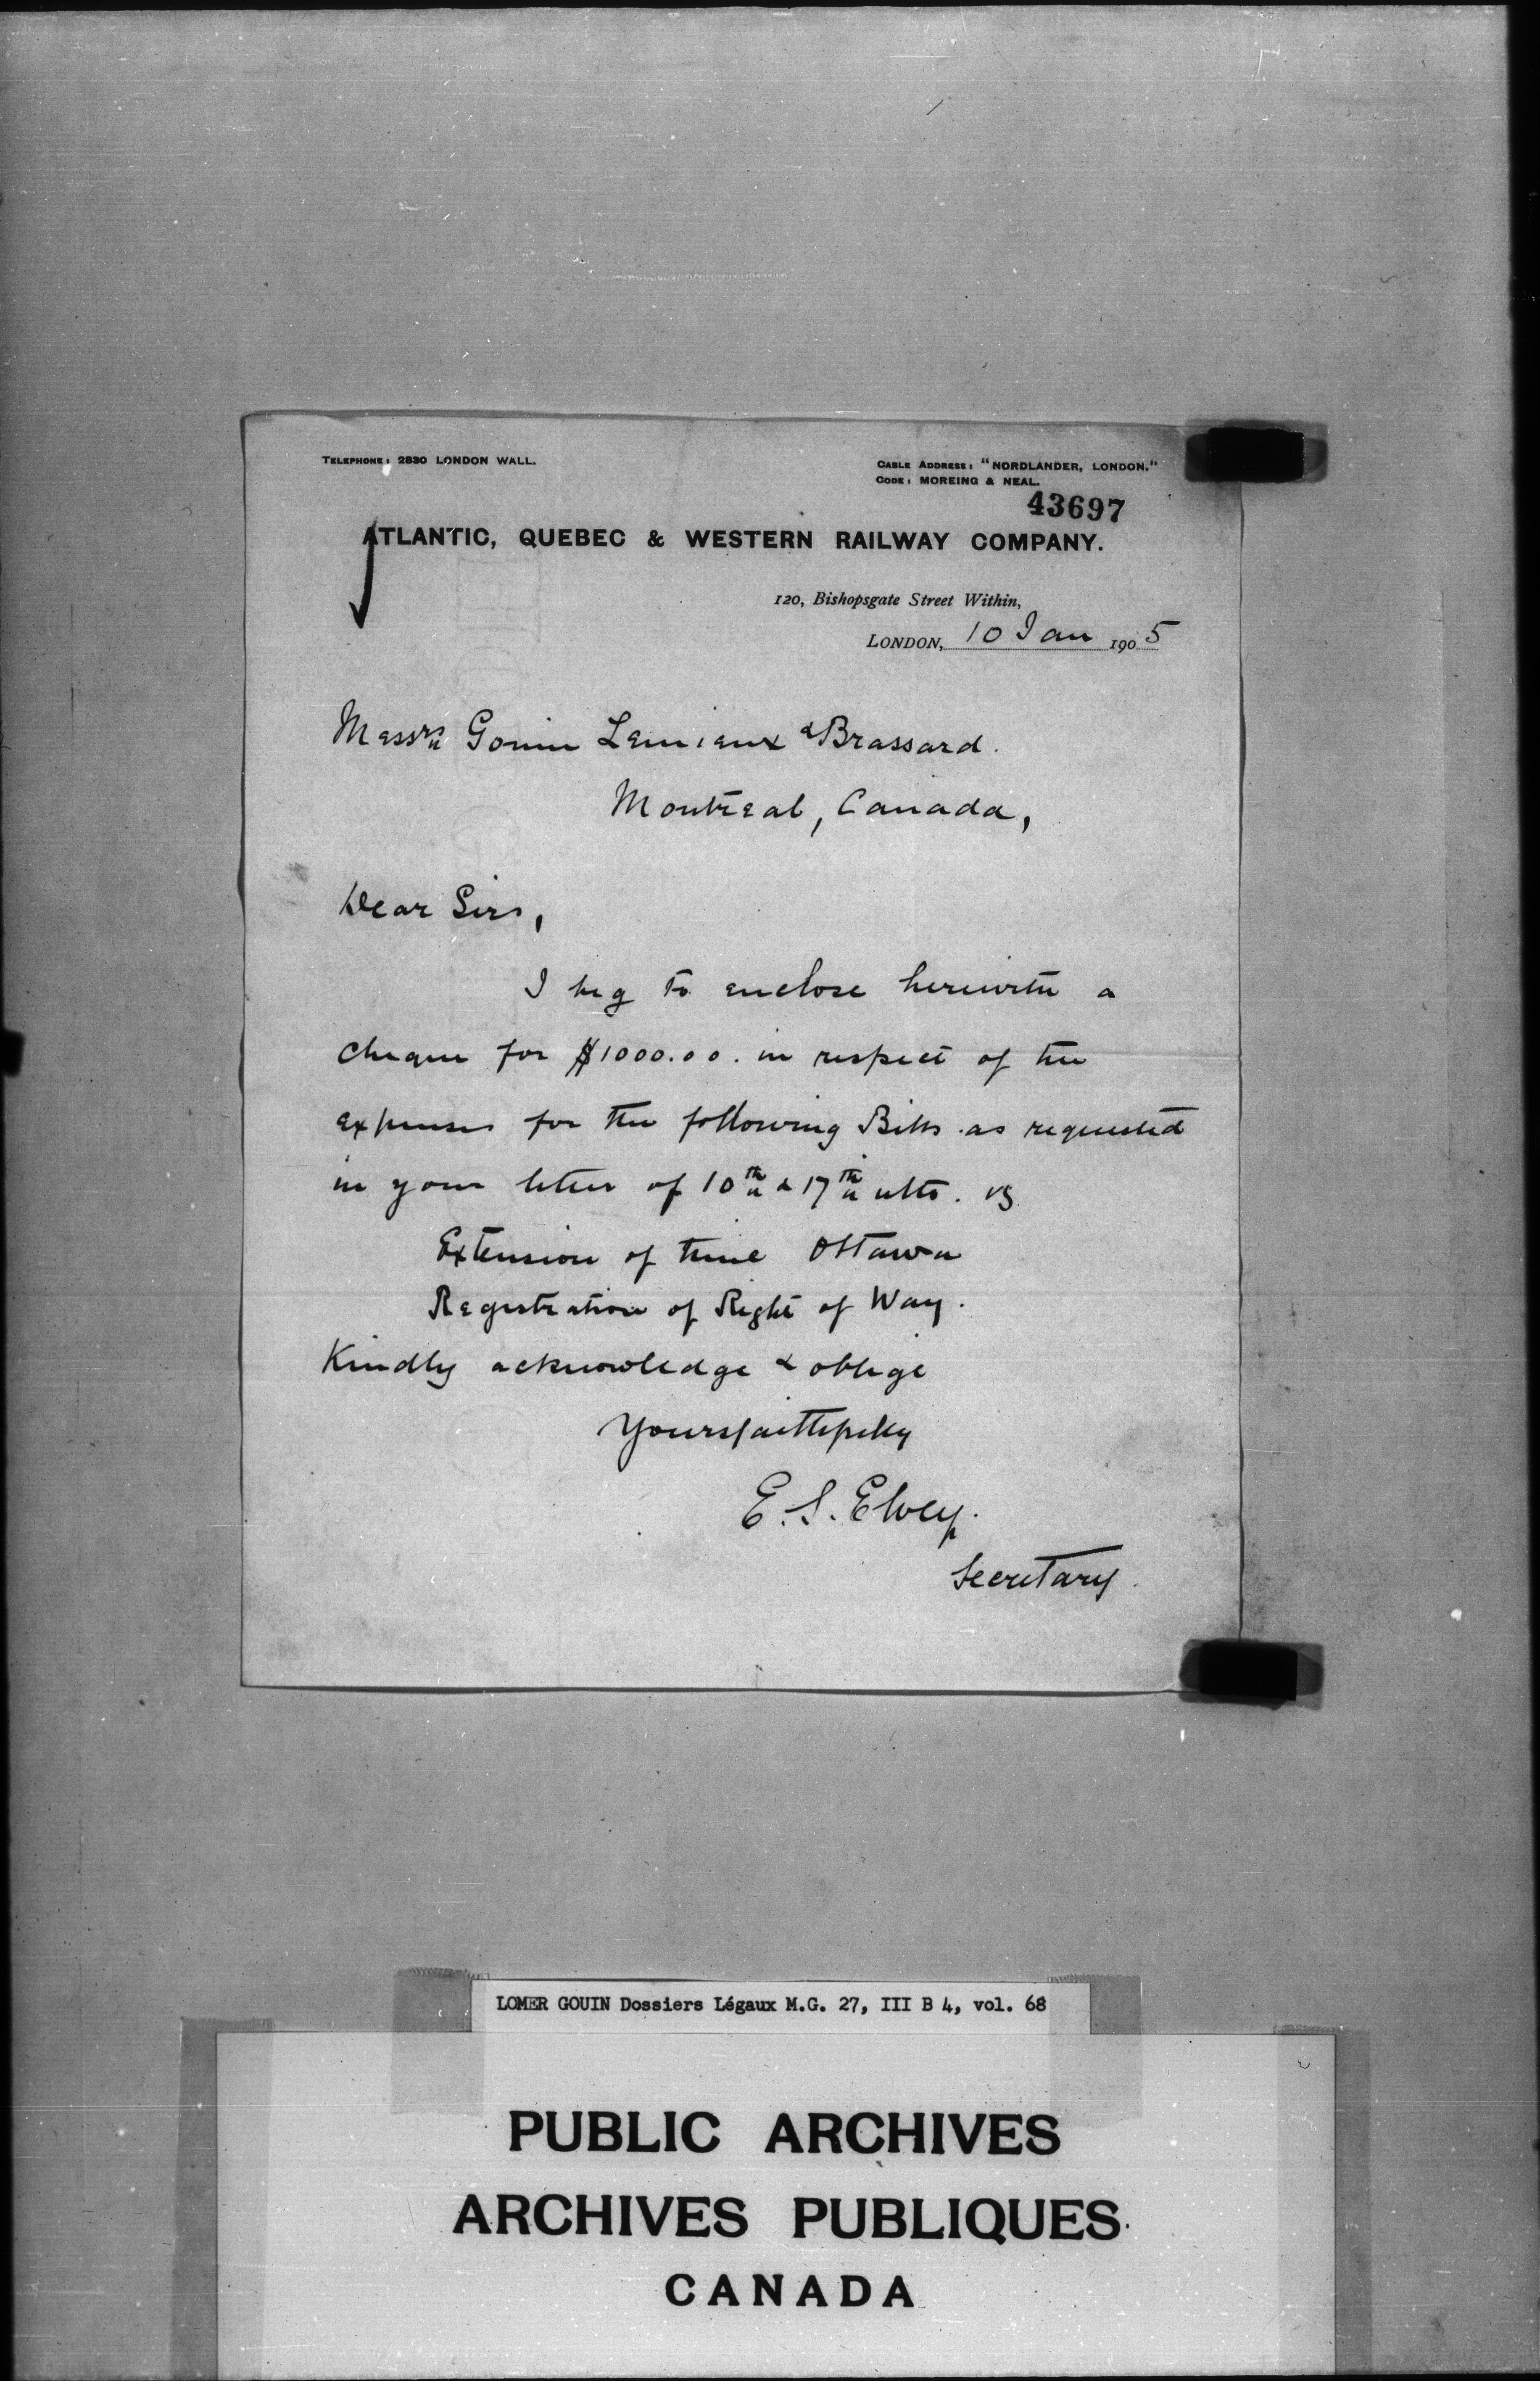 TELEPHONE: 2830 LONDON WALL.
CABLE ADDRESS: "NORDLANDER, LONDON."
CODE: MOREING & NEAL.
43697
ATLANTIC, QUEBEC & WESTERN RAILWAY COMPANY.
120, Bishopsgate Street Within,
LONDON, 10 Jan 1905
Messrs Gouin Lemieux & Brassard.
Montreal, Canada,
Dear Sirs,
I beg to enclose herewith a
cheque for $1000.00. in respect of the
expenses for the following Bills as requested
in your letter of 10th & 17th ulto. vz
Extension of time Ottawa
Registration of Right of Way.
Kindly acknowledge & oblige
Yours faithfully
E. S. Elvey.
Secretary.
LOMER GOUIN Dossiers Légaux M.G. 27, III B 4, vol. 68
PUBLIC ARCHIVES
ARCHIVES PUBLIQUES
CANADA